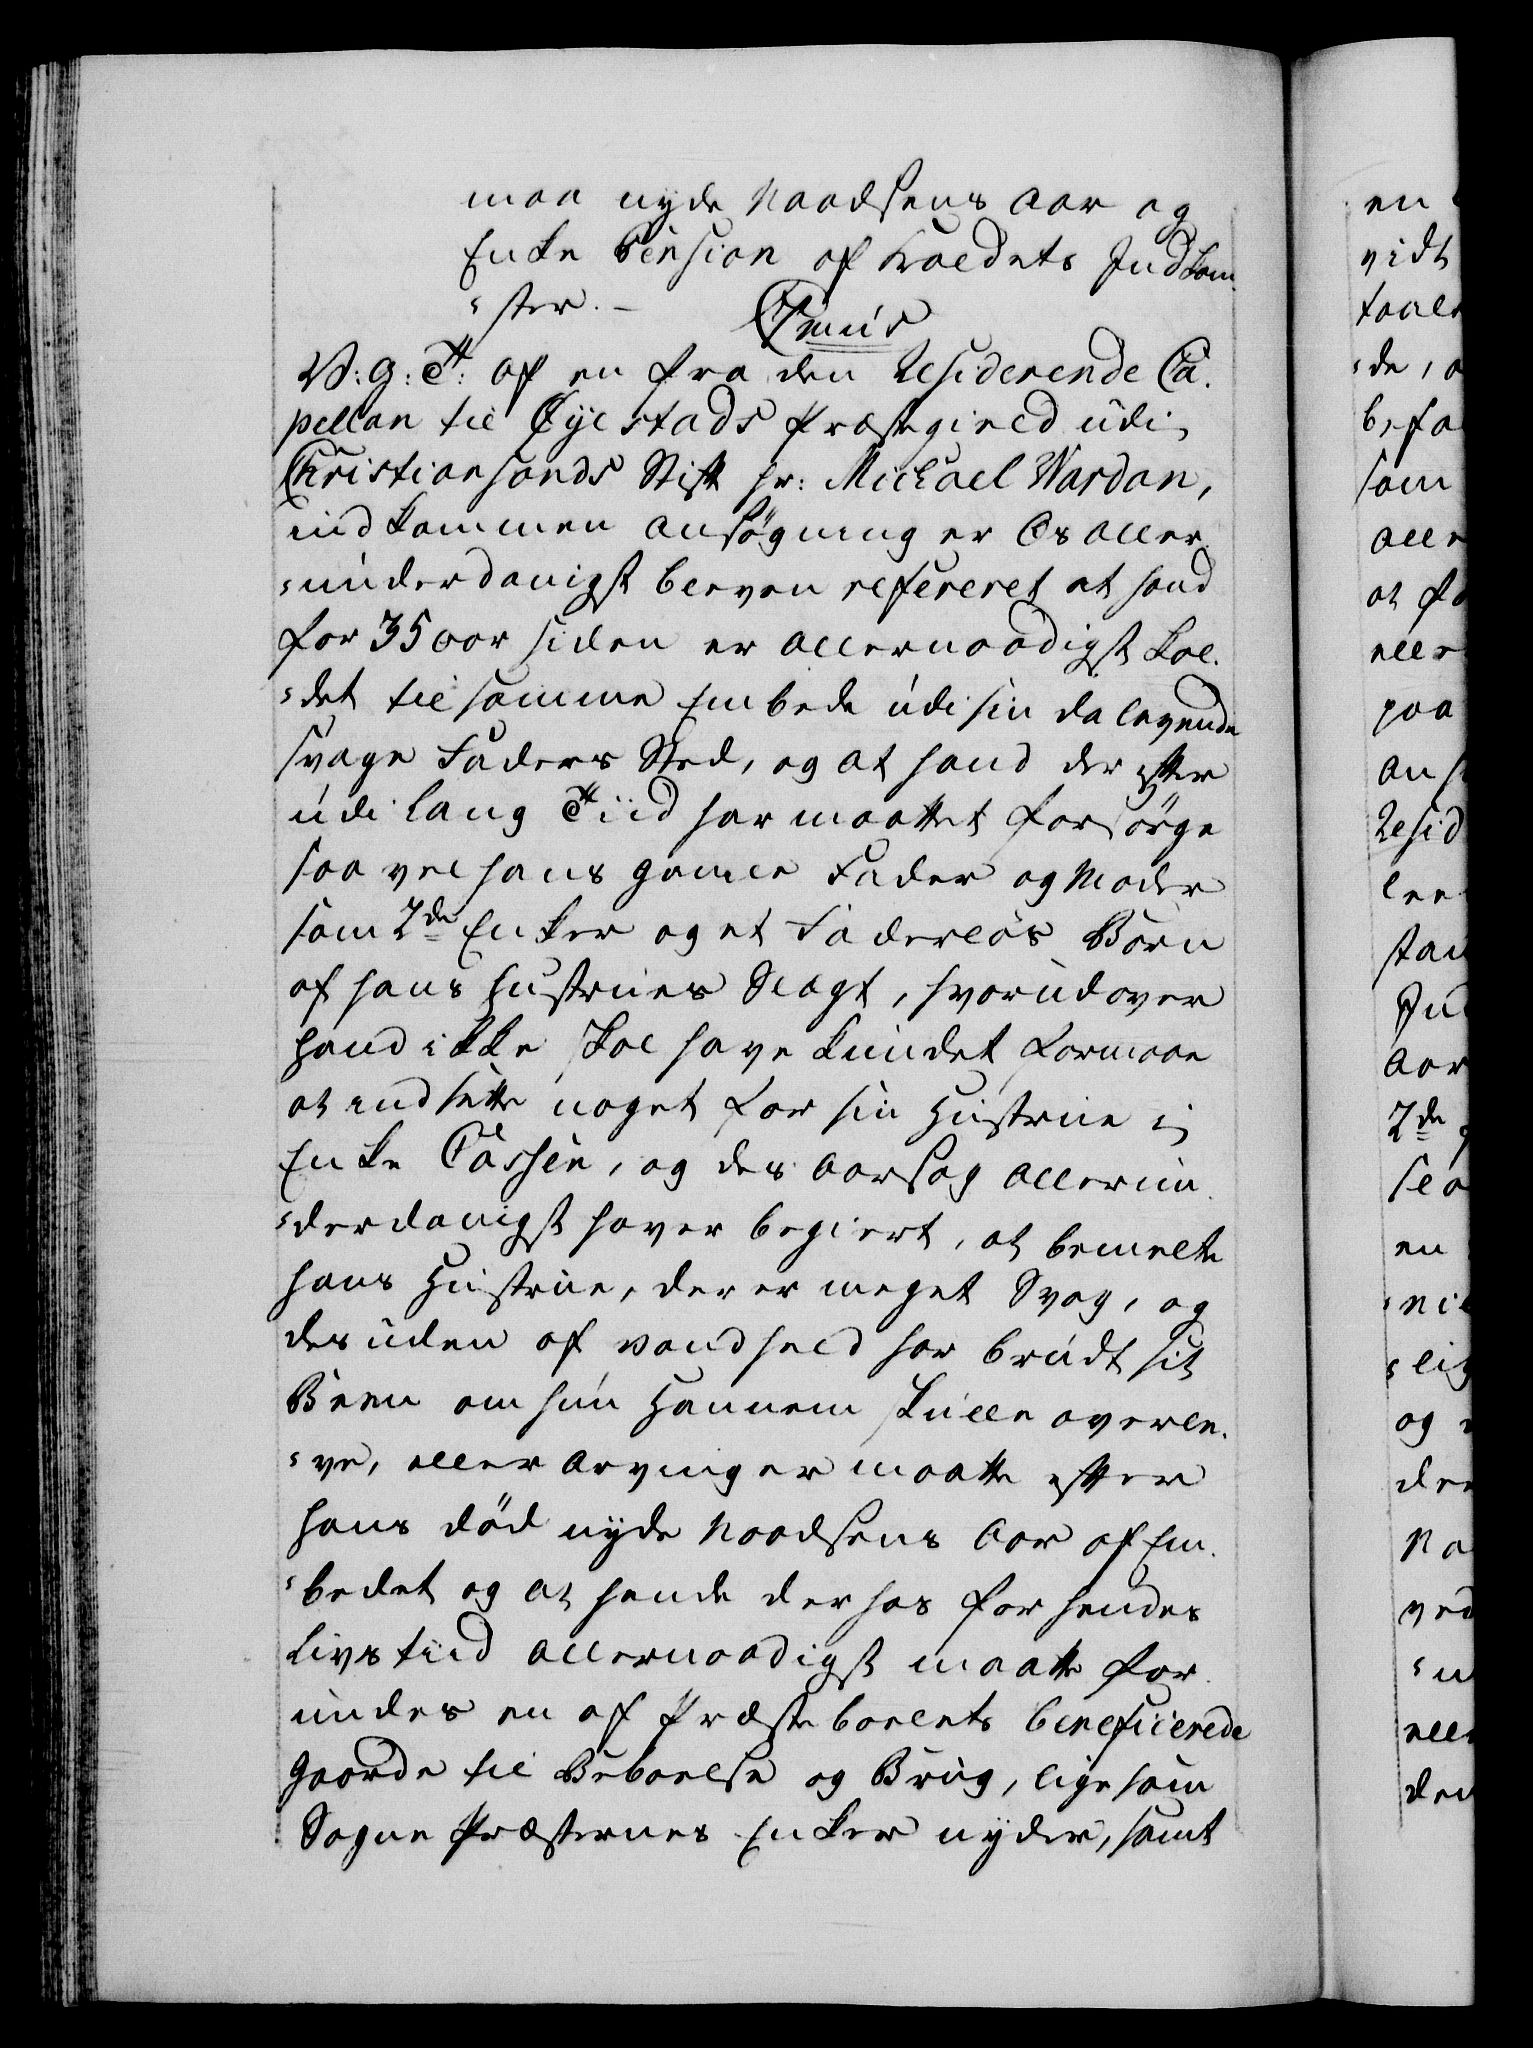 maa nyde Naadsens Aar og
Enke Pension af Kaldets Indkom-
"ster. —
Omnis
V: G: T: af en fra den Residerende Ca-
pellan til Øyestads Præstegield udi
Christiansands Stift Hr: Michael Wardan,
indkommen Ansøgning er Os aller-
"underdanigst bleven refereret at hand
for 35 aar siden er allernaadigst kal-
"det til samme Embede udi sin da levende
svage Faders Sted, og at hand der efter
udi lang Tiid har maattet forsørge
saa vel hans gamle Fader og Moder
som 2de Enker og et Faderløs Børn
af hans Hustrues Slægt, hvorudover
hand ikke skal have kundet formaae
at indsætte noget for sin Hustrue i
Enke Cassen, og des Aarsag allerun-
"derdanigst haver begiert, at bemelte
hans Hustrue, der er meget Svag, og
desuden af vandheld har brudt sit
Been om hun Hannem skulle overle-
"ve, eller Arvinger maatte efter
hans död nyde Naadsens Aar af Em-
"bedet og at hende derhos for hendes
Livstiid allernaadigst maatte for-
undes en af Præstebolets beneficerede
Gaarde til Beboelse og Brug, lige som
Sogne Præsternes Enker nyder, samt